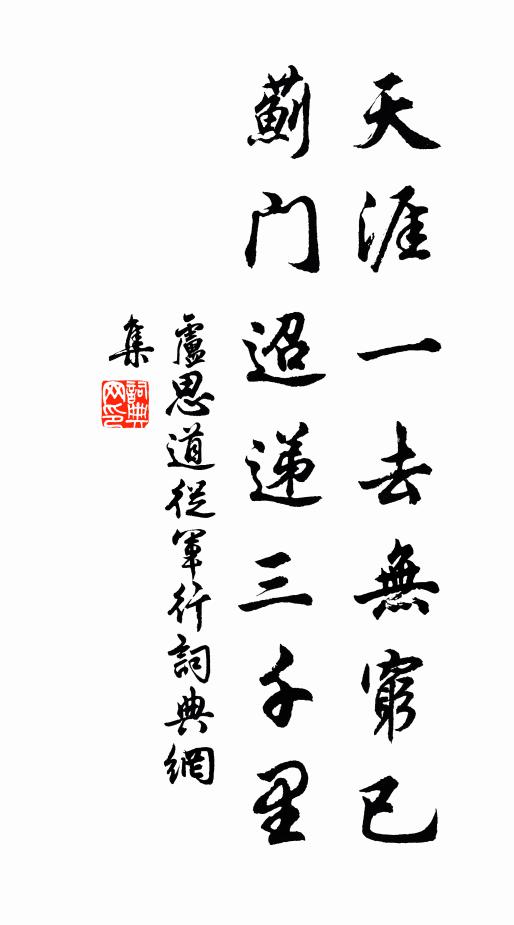 天涯一去無窮已
薊门迢递三千里
盧思道從軍行詞典網
集
詞典
网印